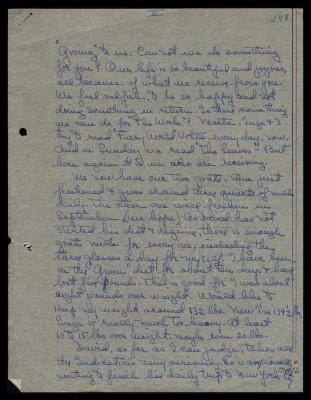 II
248
"Giving" to us. Can not we do something
for you? Our life is so beautiful and joyous,
all because of what we receive from you.
We feel selfish, to be so happy and not
doing something in return. Is there something
we can do for The Work? Martie, Inge & I
try to read Fiery World Vol III every day, now.
And on Sunday we read "The Leaves". But
here again it is we who are receiving.
We now have our two goats. One just
freshened & gives around three quarts of milk
daily. The other one will freshen in
September (we hope). As David has not
started his diet & regime, there is enough
goats milk for every one, including the
three glasses a day for myself. I have been
on the "Green" diet for about ten days & have
lost five pounds. This is good for I was about
eight pounds over weight. Would like to
keep my weight around 132 lbs. Now I'm 134½ lbs.
Inge is really much too heavy. At least
10 to 15 lbs over weight, maybe even 20 lbs.
David, as far as I can judge, takes all
the Indications very seriously. He is
waiting to finish his daily trip to New York City